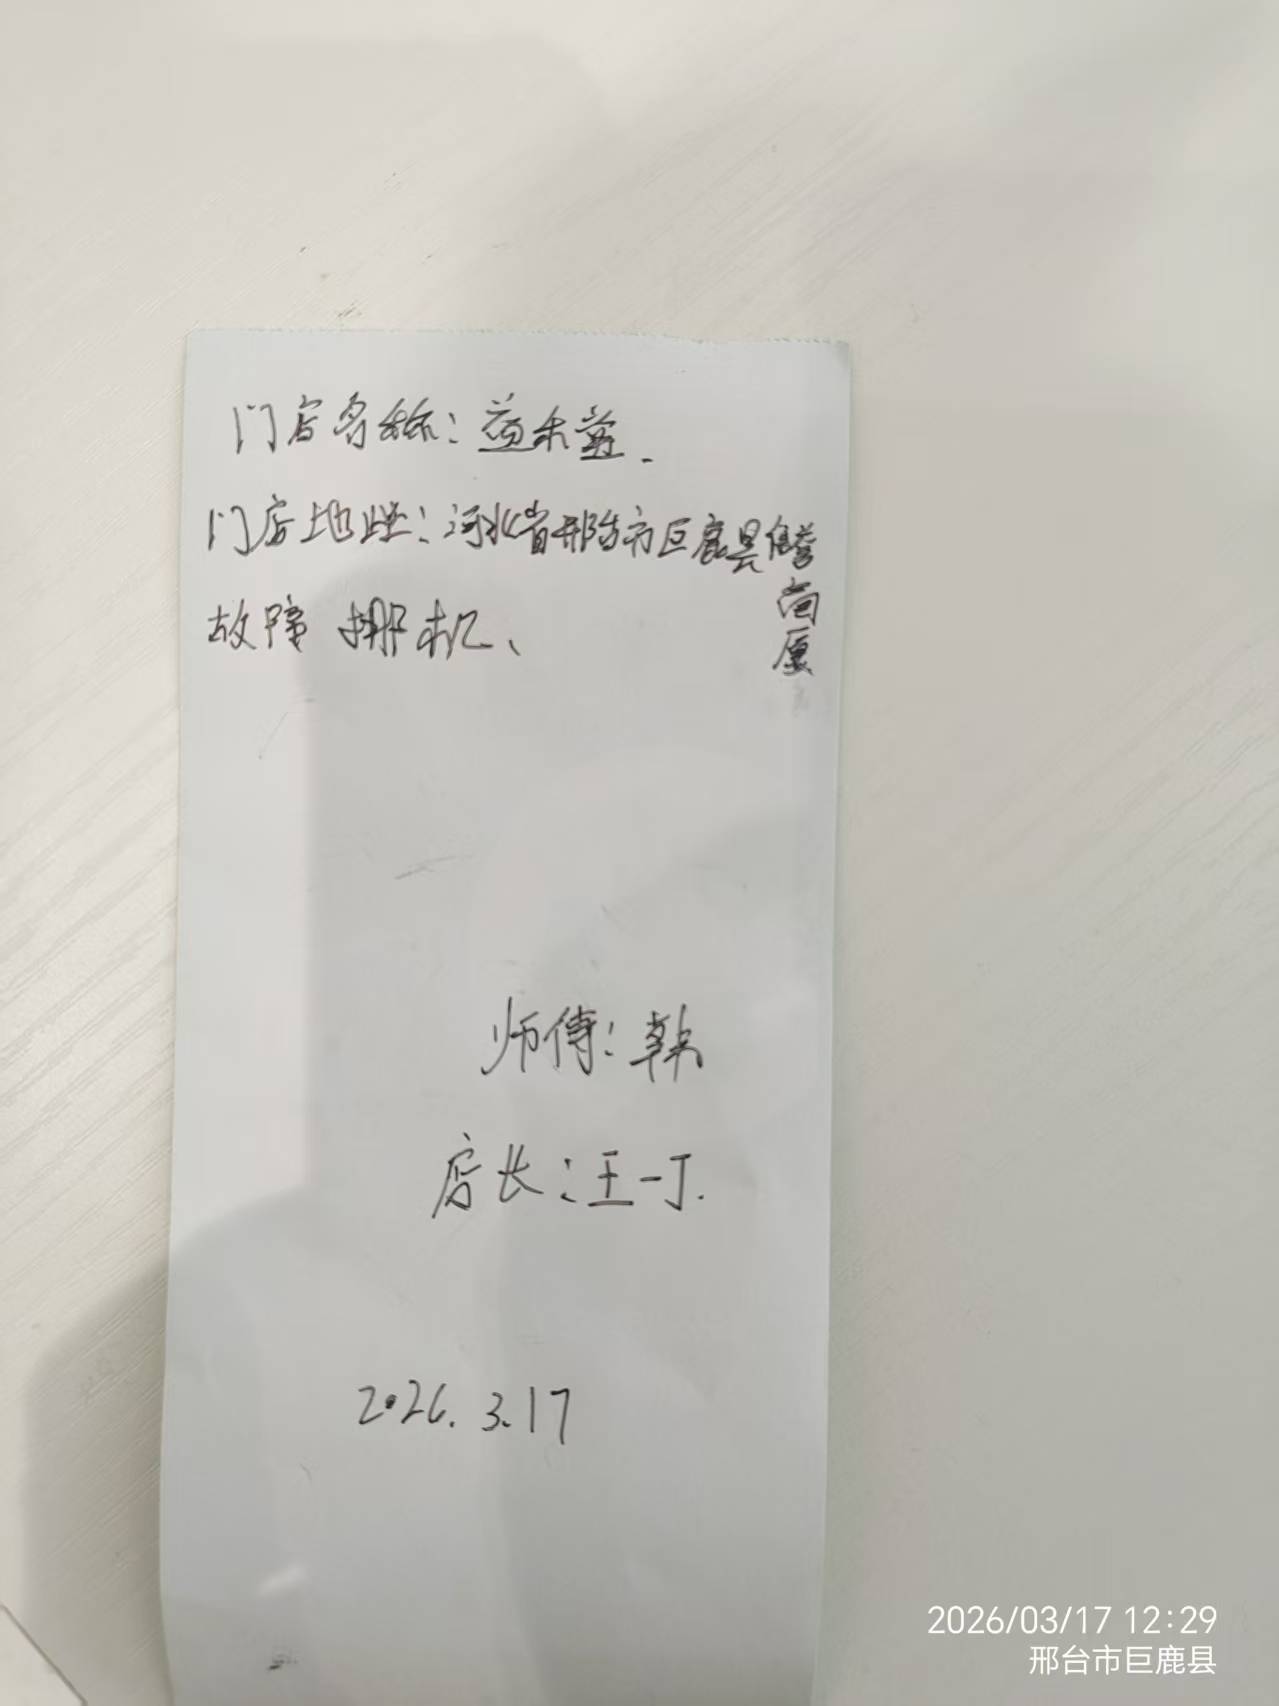 门店名称：益禾堂.
门店地址：河北省邢台市巨鹿县信誉
商厦
故障 排机、
师傅：韩
店长：王一丁.
2026.3.17
2026/03/17 12:29
邢台市巨鹿县